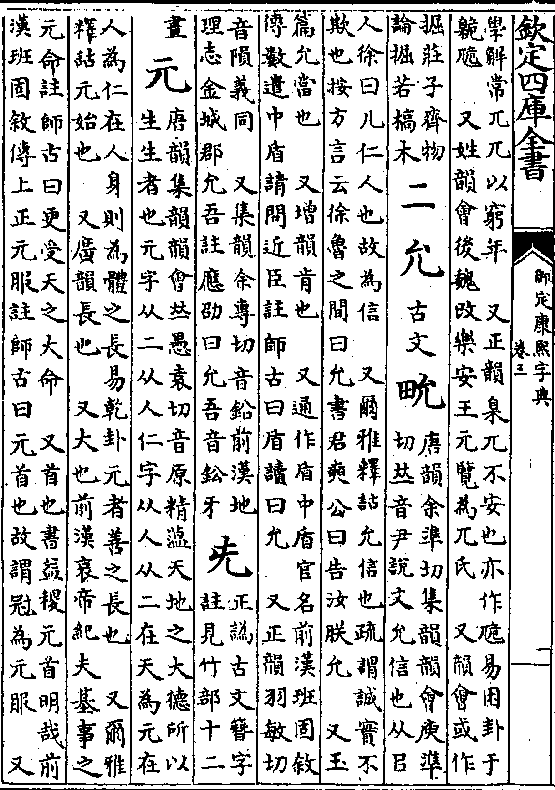 欽定四庫全書
御定康熙字典
卷三
一
學解常兀兀以窮年 又正韻臬兀不安也亦作𡰈易困卦于
臲𡰈 又姓韻會後魏改樂安王元覽為兀氏 又韻會或作
掘莊子齊物
論掘若槁木
二 允 古文 㽙
唐韻余準切集韻韻會庾準
切𠀤音尹說文允信也从㠯
人徐曰儿仁人也故為信 又爾雅釋詁允信也疏謂誠實不
欺也按方言云徐魯之間曰允書君奭公曰告汝朕允 又玉
篇允當也 又增韻肯也 又通作盾中盾官名前漢班固敘
傳數遣中盾請問近臣註師古曰盾讀曰允 又正韻羽敏切
音隕義同 又集韻余專切音鉛前漢地
理志金城郡允吾註應劭曰允吾音鈆牙
兂
正譌古文簪字
註見竹部十二
畫
元
唐韻集韻韻會𠀤愚袁切音原精蘊天地之大德所以
生生者也元字从二从人仁字从人从二在天為元在
人為仁在人身則為體之長易乾卦元者善之長也 又爾雅
釋詁元始也 又廣韻長也 又大也前漢哀帝紀夫基事之
元命註師古曰更受天之大命 又首也書益稷元首明哉前
漢班固敘傳上正元服註師古曰元首也故謂冠為元服 又